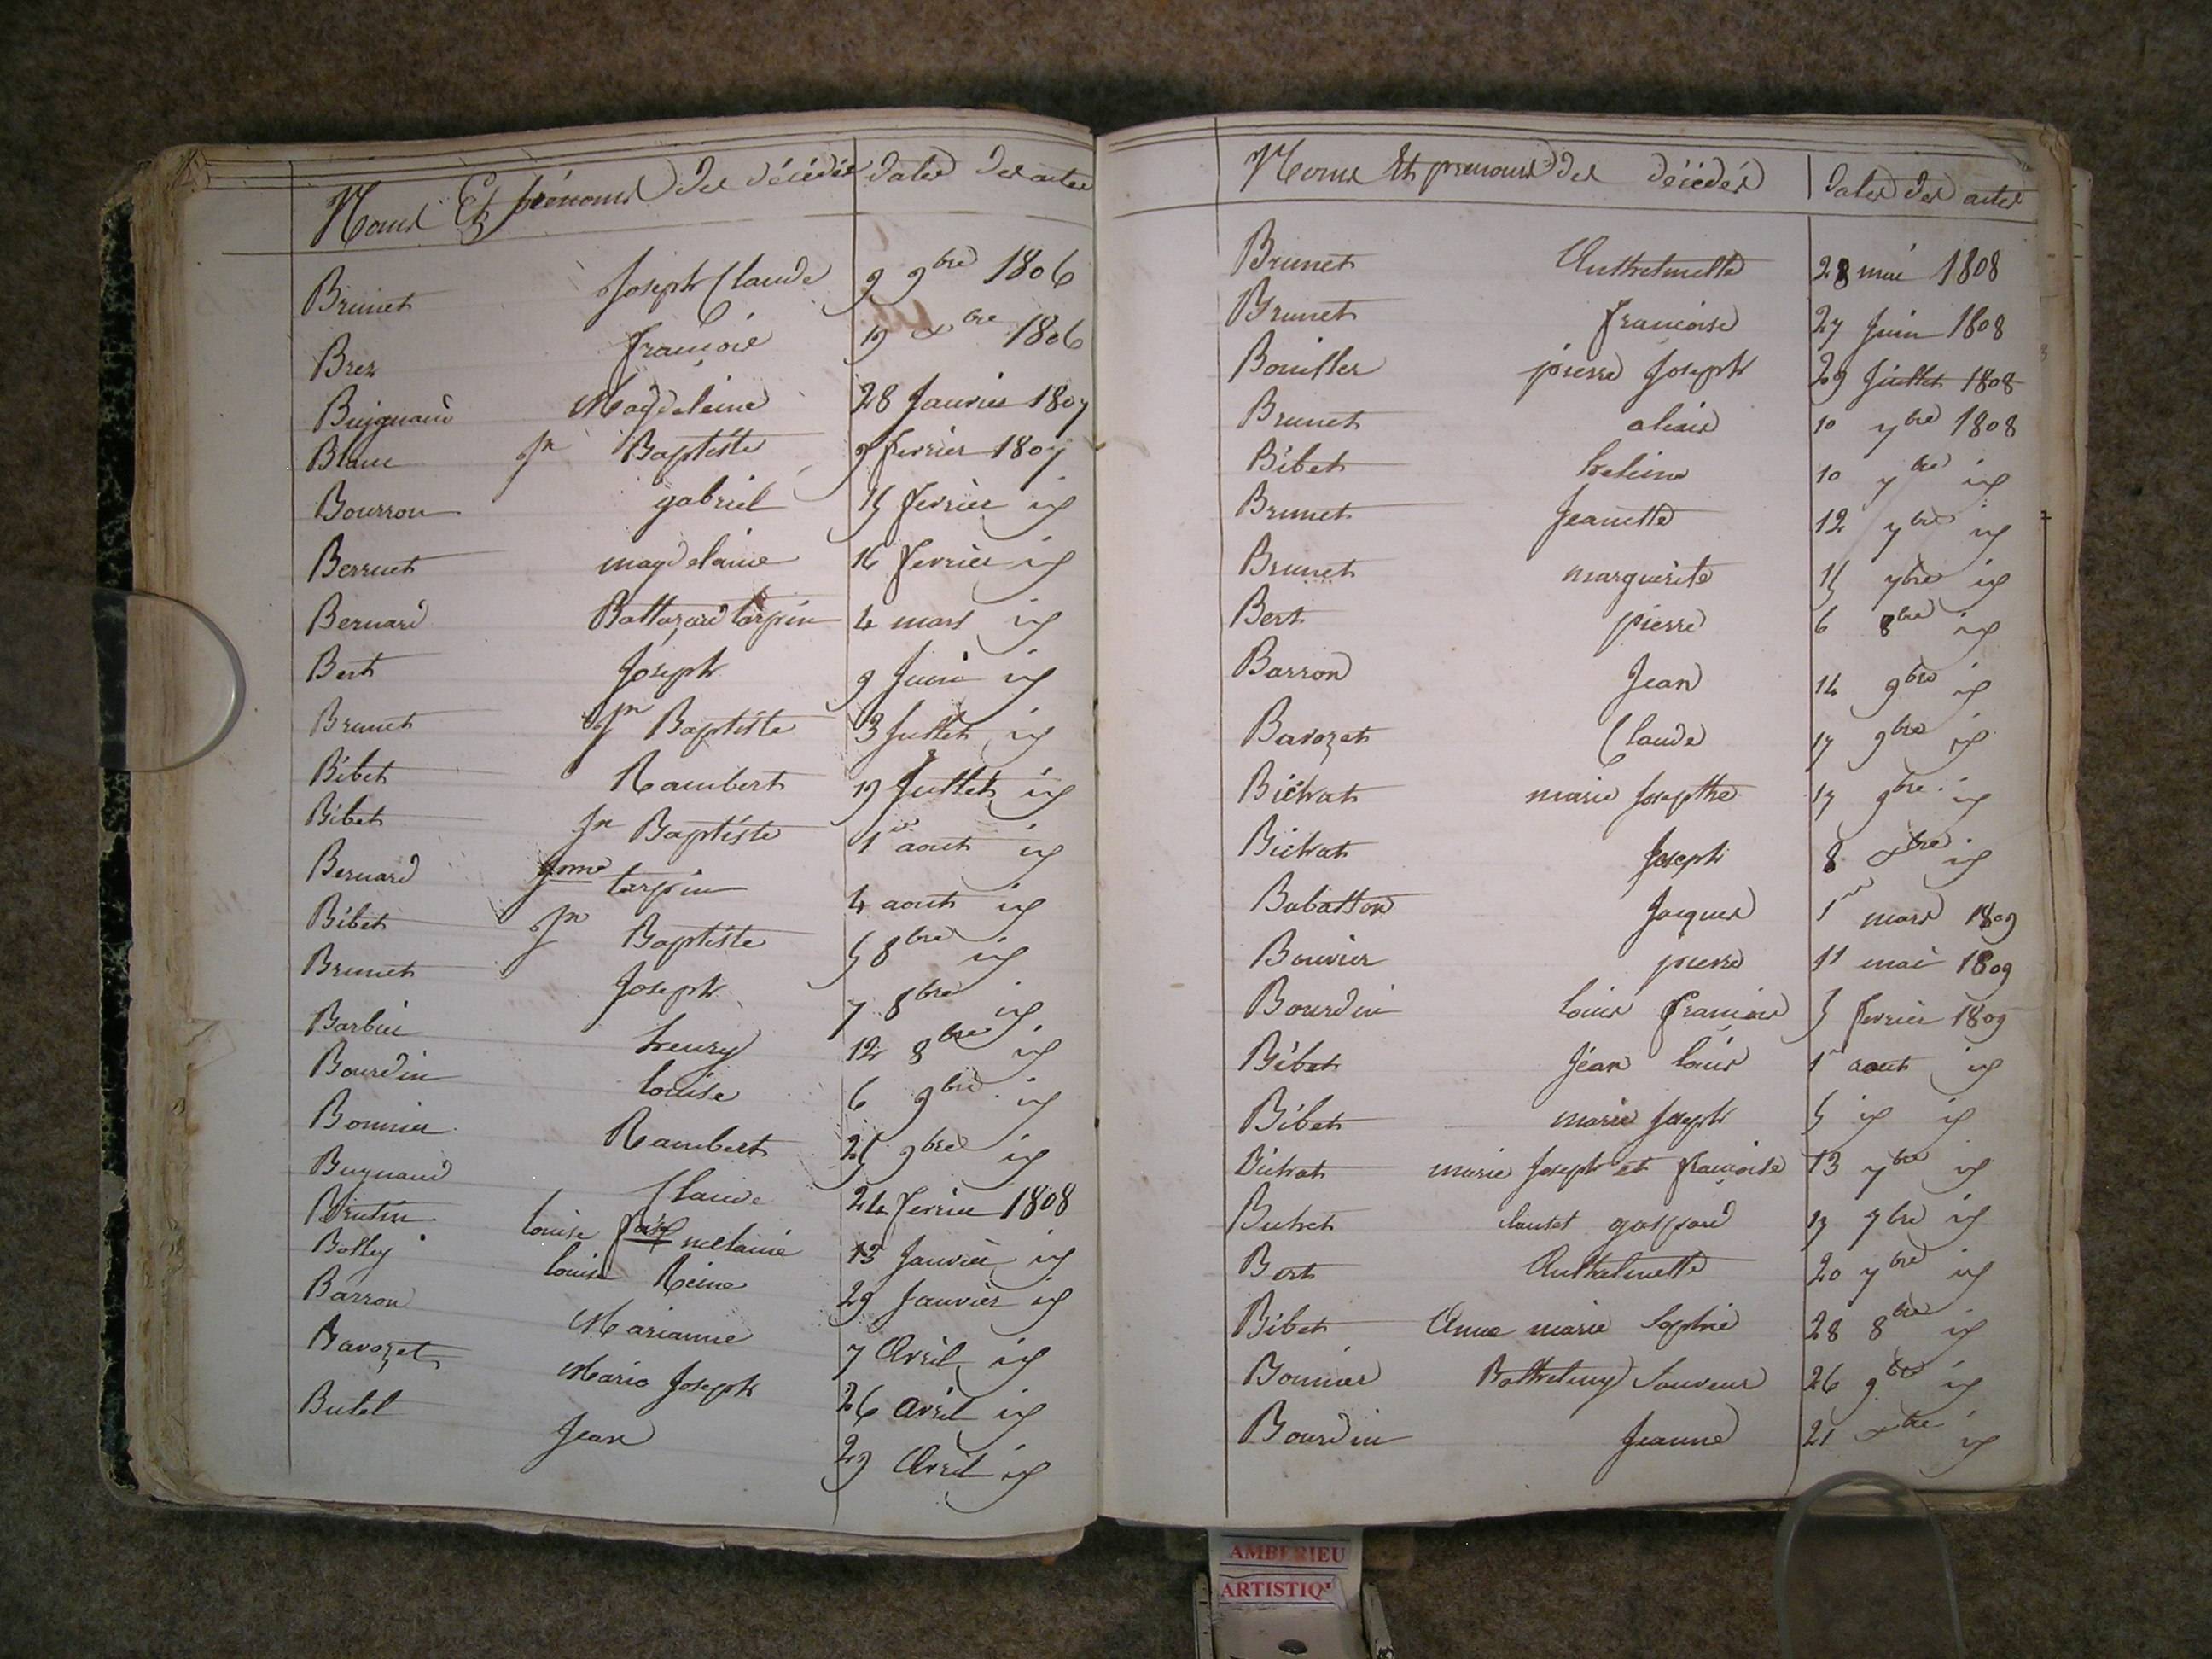 Noms Et prénoms des décédés dates des actes
Brunet Joseph Claude 9 9bre 1806
Brez françois 19 xbre 1806
Bujgnand Magdeleine 28 Janvier 1807
Blanc Jn Baptiste 9 fevrier 1807
Bourron gabriel 15 fevrier id
Berruet magdelaine 16 fevrier id
Bernard Baltazard tarpin 4 mars id
Bert Joseph 9 Juin id
Brunet Jn Baptiste 3 Juillet id
Bibet Rambert 19 Juillet id
Bibet Jn Baptiste 1er aout id
Bernard tarpin 4 aout id
Bibet Jn Baptiste 5 8bre id
Brunet Joseph 7 8bre id
Barbier henry 12 8bre id
Bourdin louise 6 9bre id
Bonnier Rambert 25 9bre id
Bugnand Claude 24 fevrier 1808
louise melanie 13 Janvier id
Bolley louise Reine 29 Janvier id
Barron Marianne 7 Avril id
Bavozet Marie Joseph 26 avril id
Butel Jean 29 Avril id
Noms Et prenoms des décédés Dates des actes
Brunet Anthelmette 28 mai 1808
Brunet françoise 27 Juin 1808
Bouiller pierre Joseph 29 Juillet 1808
Brunet 10 7bre 1808
Bibet heleine 10 7bre id
Brunet Jeanette 12 7bre id
Brunet marguerite 15 7bre id
Bert pierre 6 8bre id
Barron Jean 14 9bre id
Bavozet Claude 17 9bre id
Bichat marie Josepthe 17 9bre id
Bichat Joseph 8 xbre id
Babatton Jacques 1er mars 1809
Bouvier pierre 11 mai 1809
Bourdin louis François 5 fevrier 1809
Bibet Jéan louis 1er aout id
Bibet marie Joseph 5 id id
Bichat marie Joseph et françoise 13 7bre id
gaspard 17 7bre id
Bert Anthelmette 20 7bre id
Bibet Anne marie Sophie 28 8bre id
Bonnier Barthelemy Sauveur 26 9bre id
Bourdin Jeanne 21 xbre id
AMBERIEU
ARTISTIQ